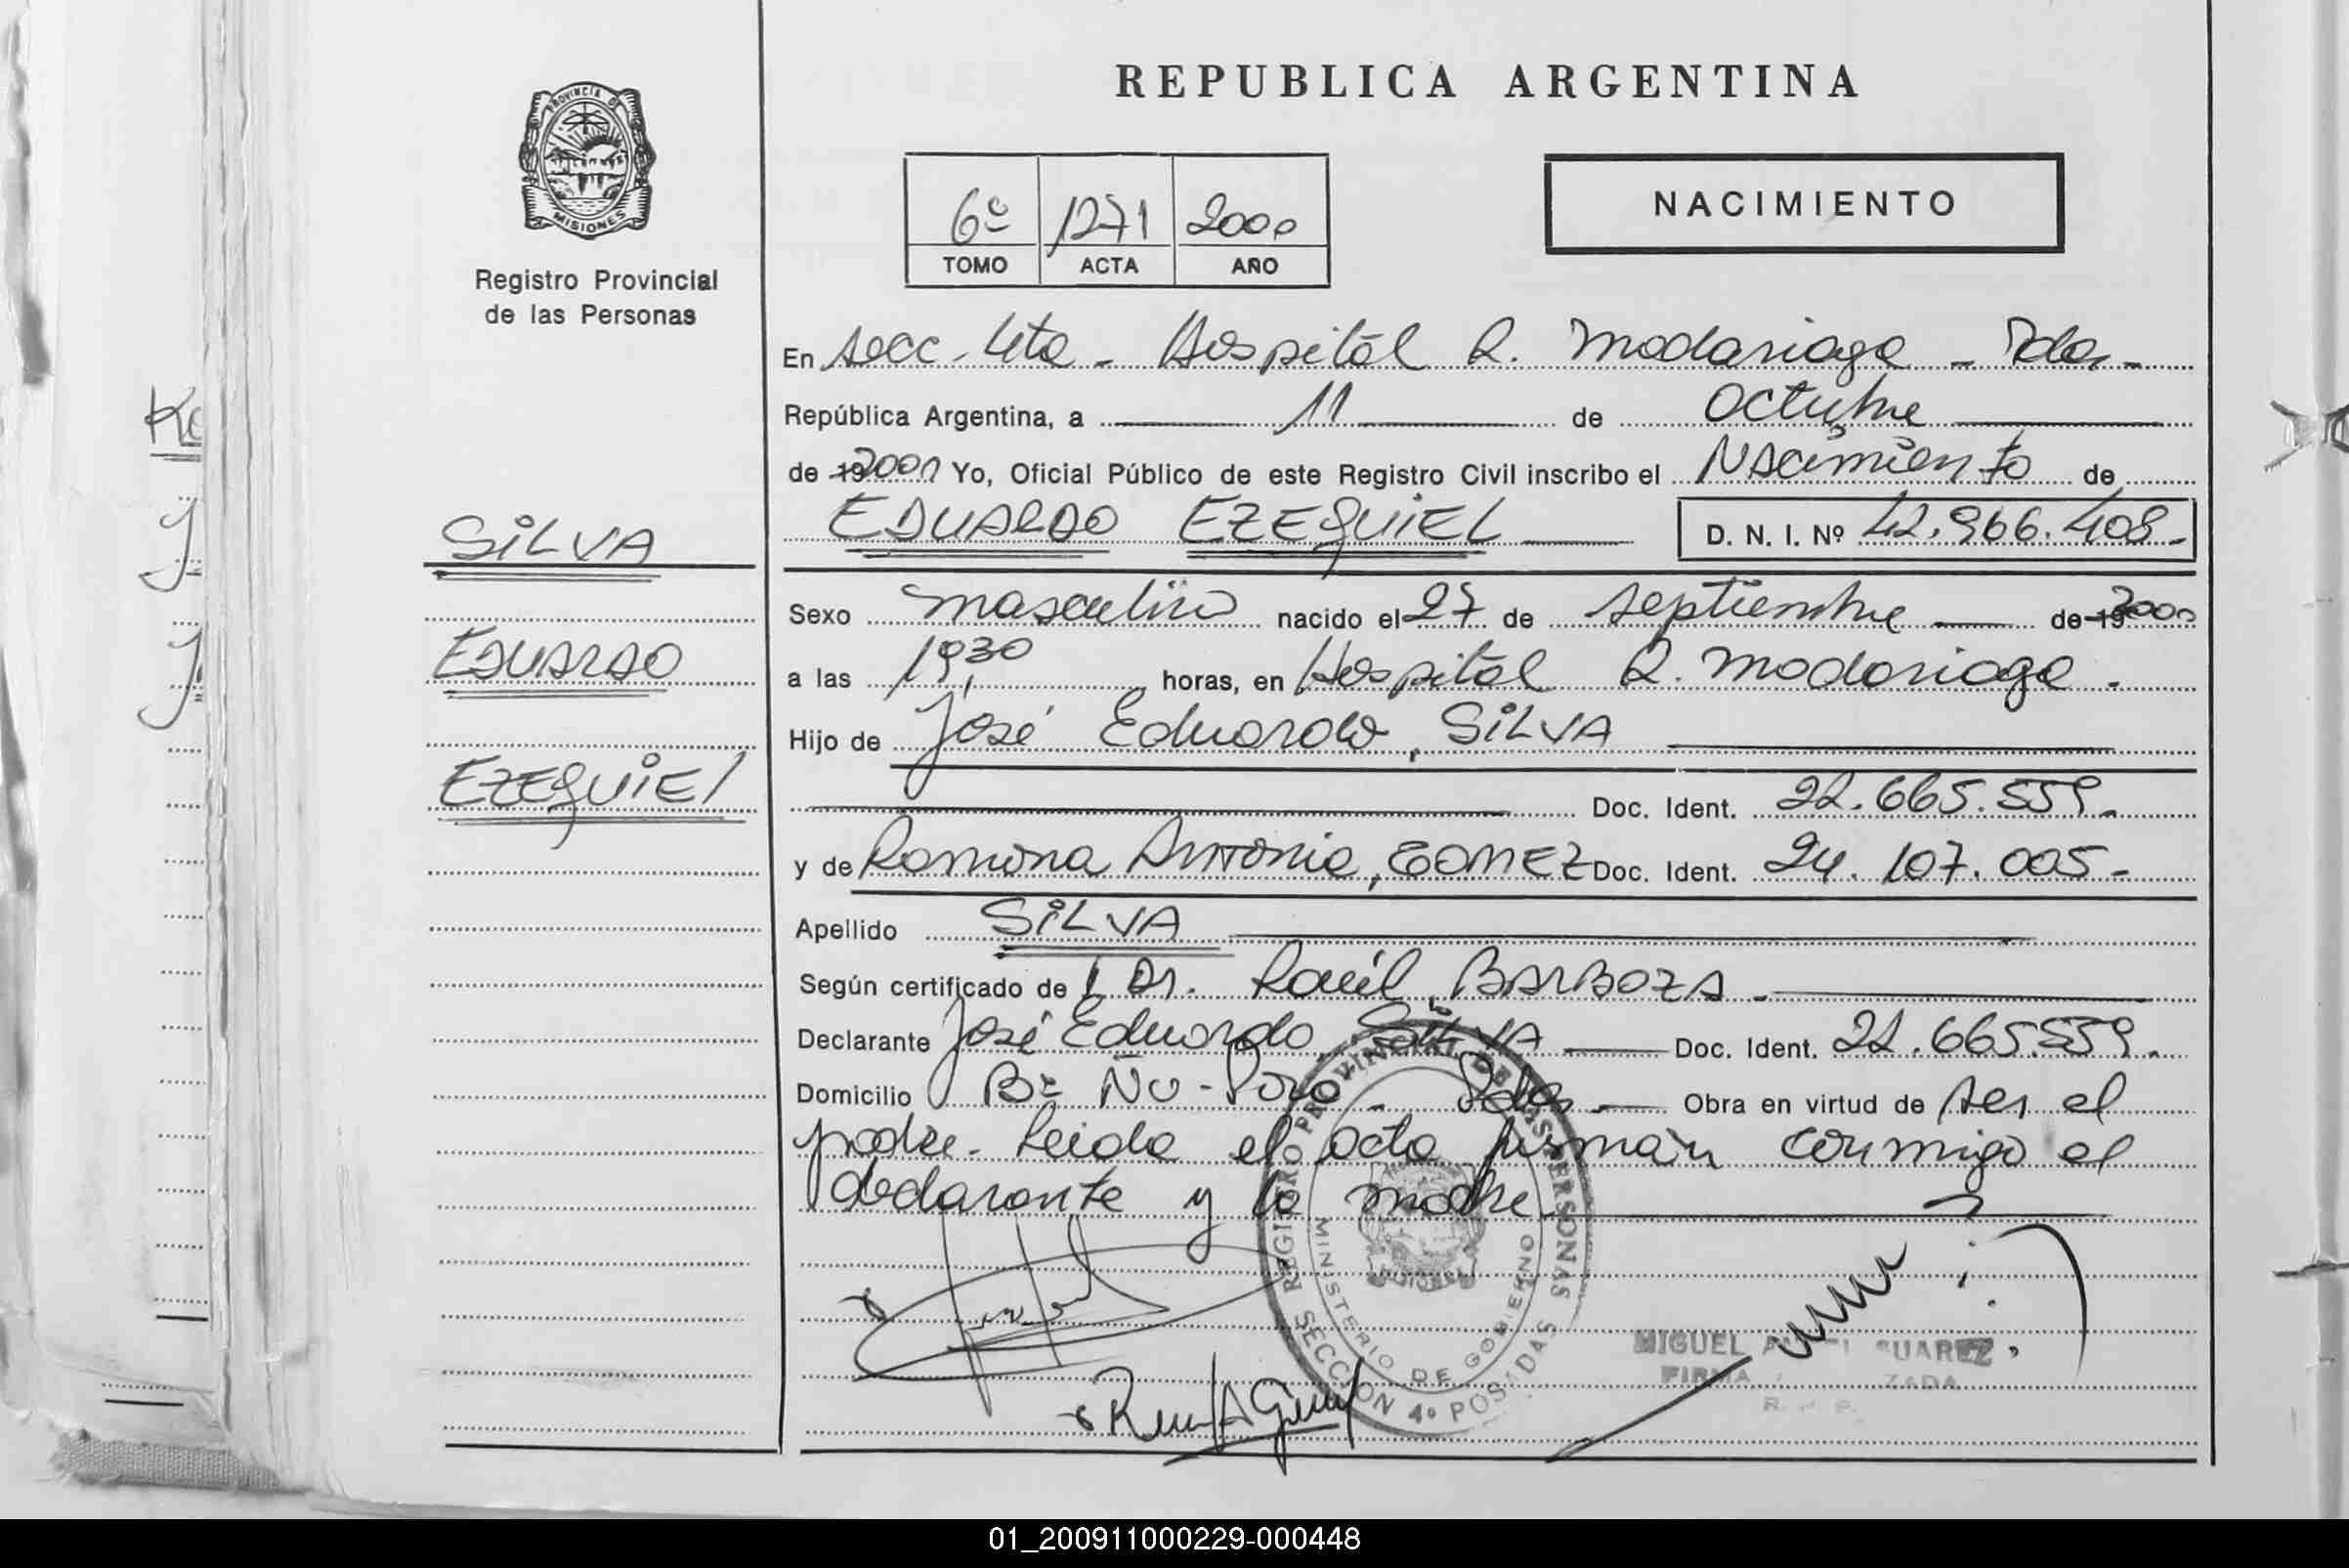 REPUBLICA ARGENTINA
PROVINCIA DE
MISIONES
Registro Provincial
de las Personas
6º 1271 2000
TOMO ACTA AÑO
NACIMIENTO
En Secc. 4ta - Hospital R. Madariaga - Pdas -
República Argentina, a 11 de Octubre
de 19 2000 Yo, Oficial Público de este Registro Civil inscribo el Nacimiento de
EDUARDO EZEQUIEL D. N. I. Nº 42.966.408.-
SILVA
EDUARDO
EZEQUIEL
Sexo masculino nacido el 27 de septiembre de 19 2000
a las 19,30 horas, en Hospital R. Madariaga.
Hijo de José Eduardo, SILVA
Doc. Ident. 22.665.559.-
y de Ramona Antonia, GOMEZ Doc. Ident. 24.107.005.-
Apellido SILVA
Según certificado de Dr. Raúl BARBOZA.
Declarante José Eduardo SILVA Doc. Ident. 22.665.559.
Domicilio Bº Ñu-Porá - Pdas - Obra en virtud de ser el
padre. Leida el acta firman conmigo el
declarante y la madre
REGISTRO PROVINCIAL DE LAS PERSONAS
MINISTERIO DE GOBIERNO
SECCION 4º POSADAS
MISIONES
MIGUEL SUAREZ
FIRMA
Ko
01_200911000229-000448